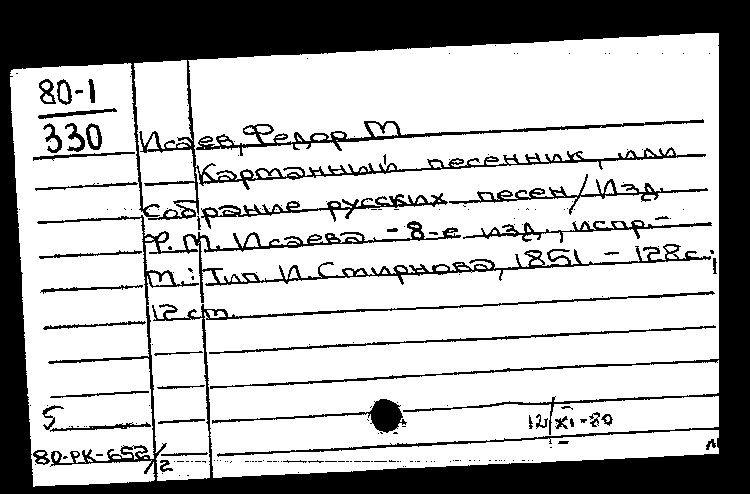 80-1
330
Исаев, Федор М
Карманный песенник, или
собрание русских песен / Изд.
Ф. М. Исаева. - 8-е изд., испр. -
М.: Тип. И. Смирнова, 1851. - 128с.;
12 см.
5
12/XI-80
80-РК-652/2